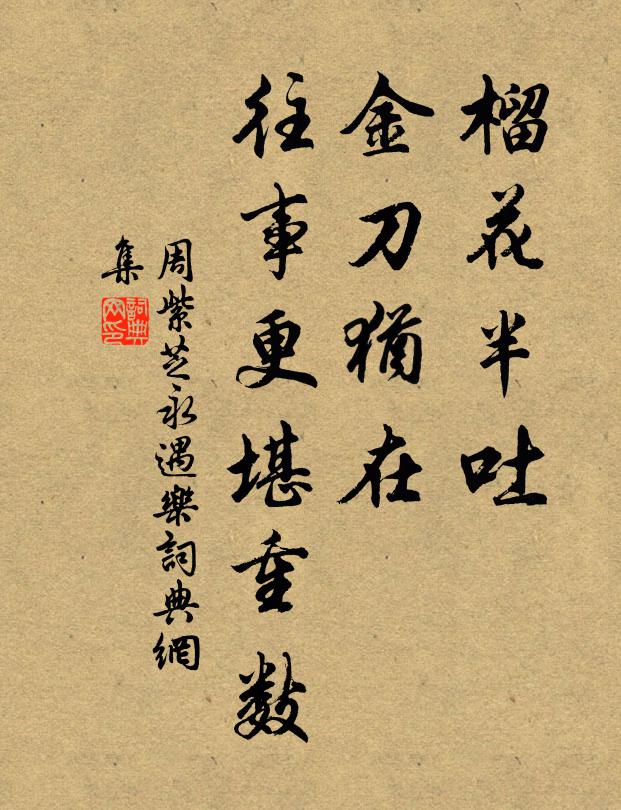 榴花半吐
金刀猶在
往事更堪重數
周紫芝永遇樂詞典網
集
詞典网印